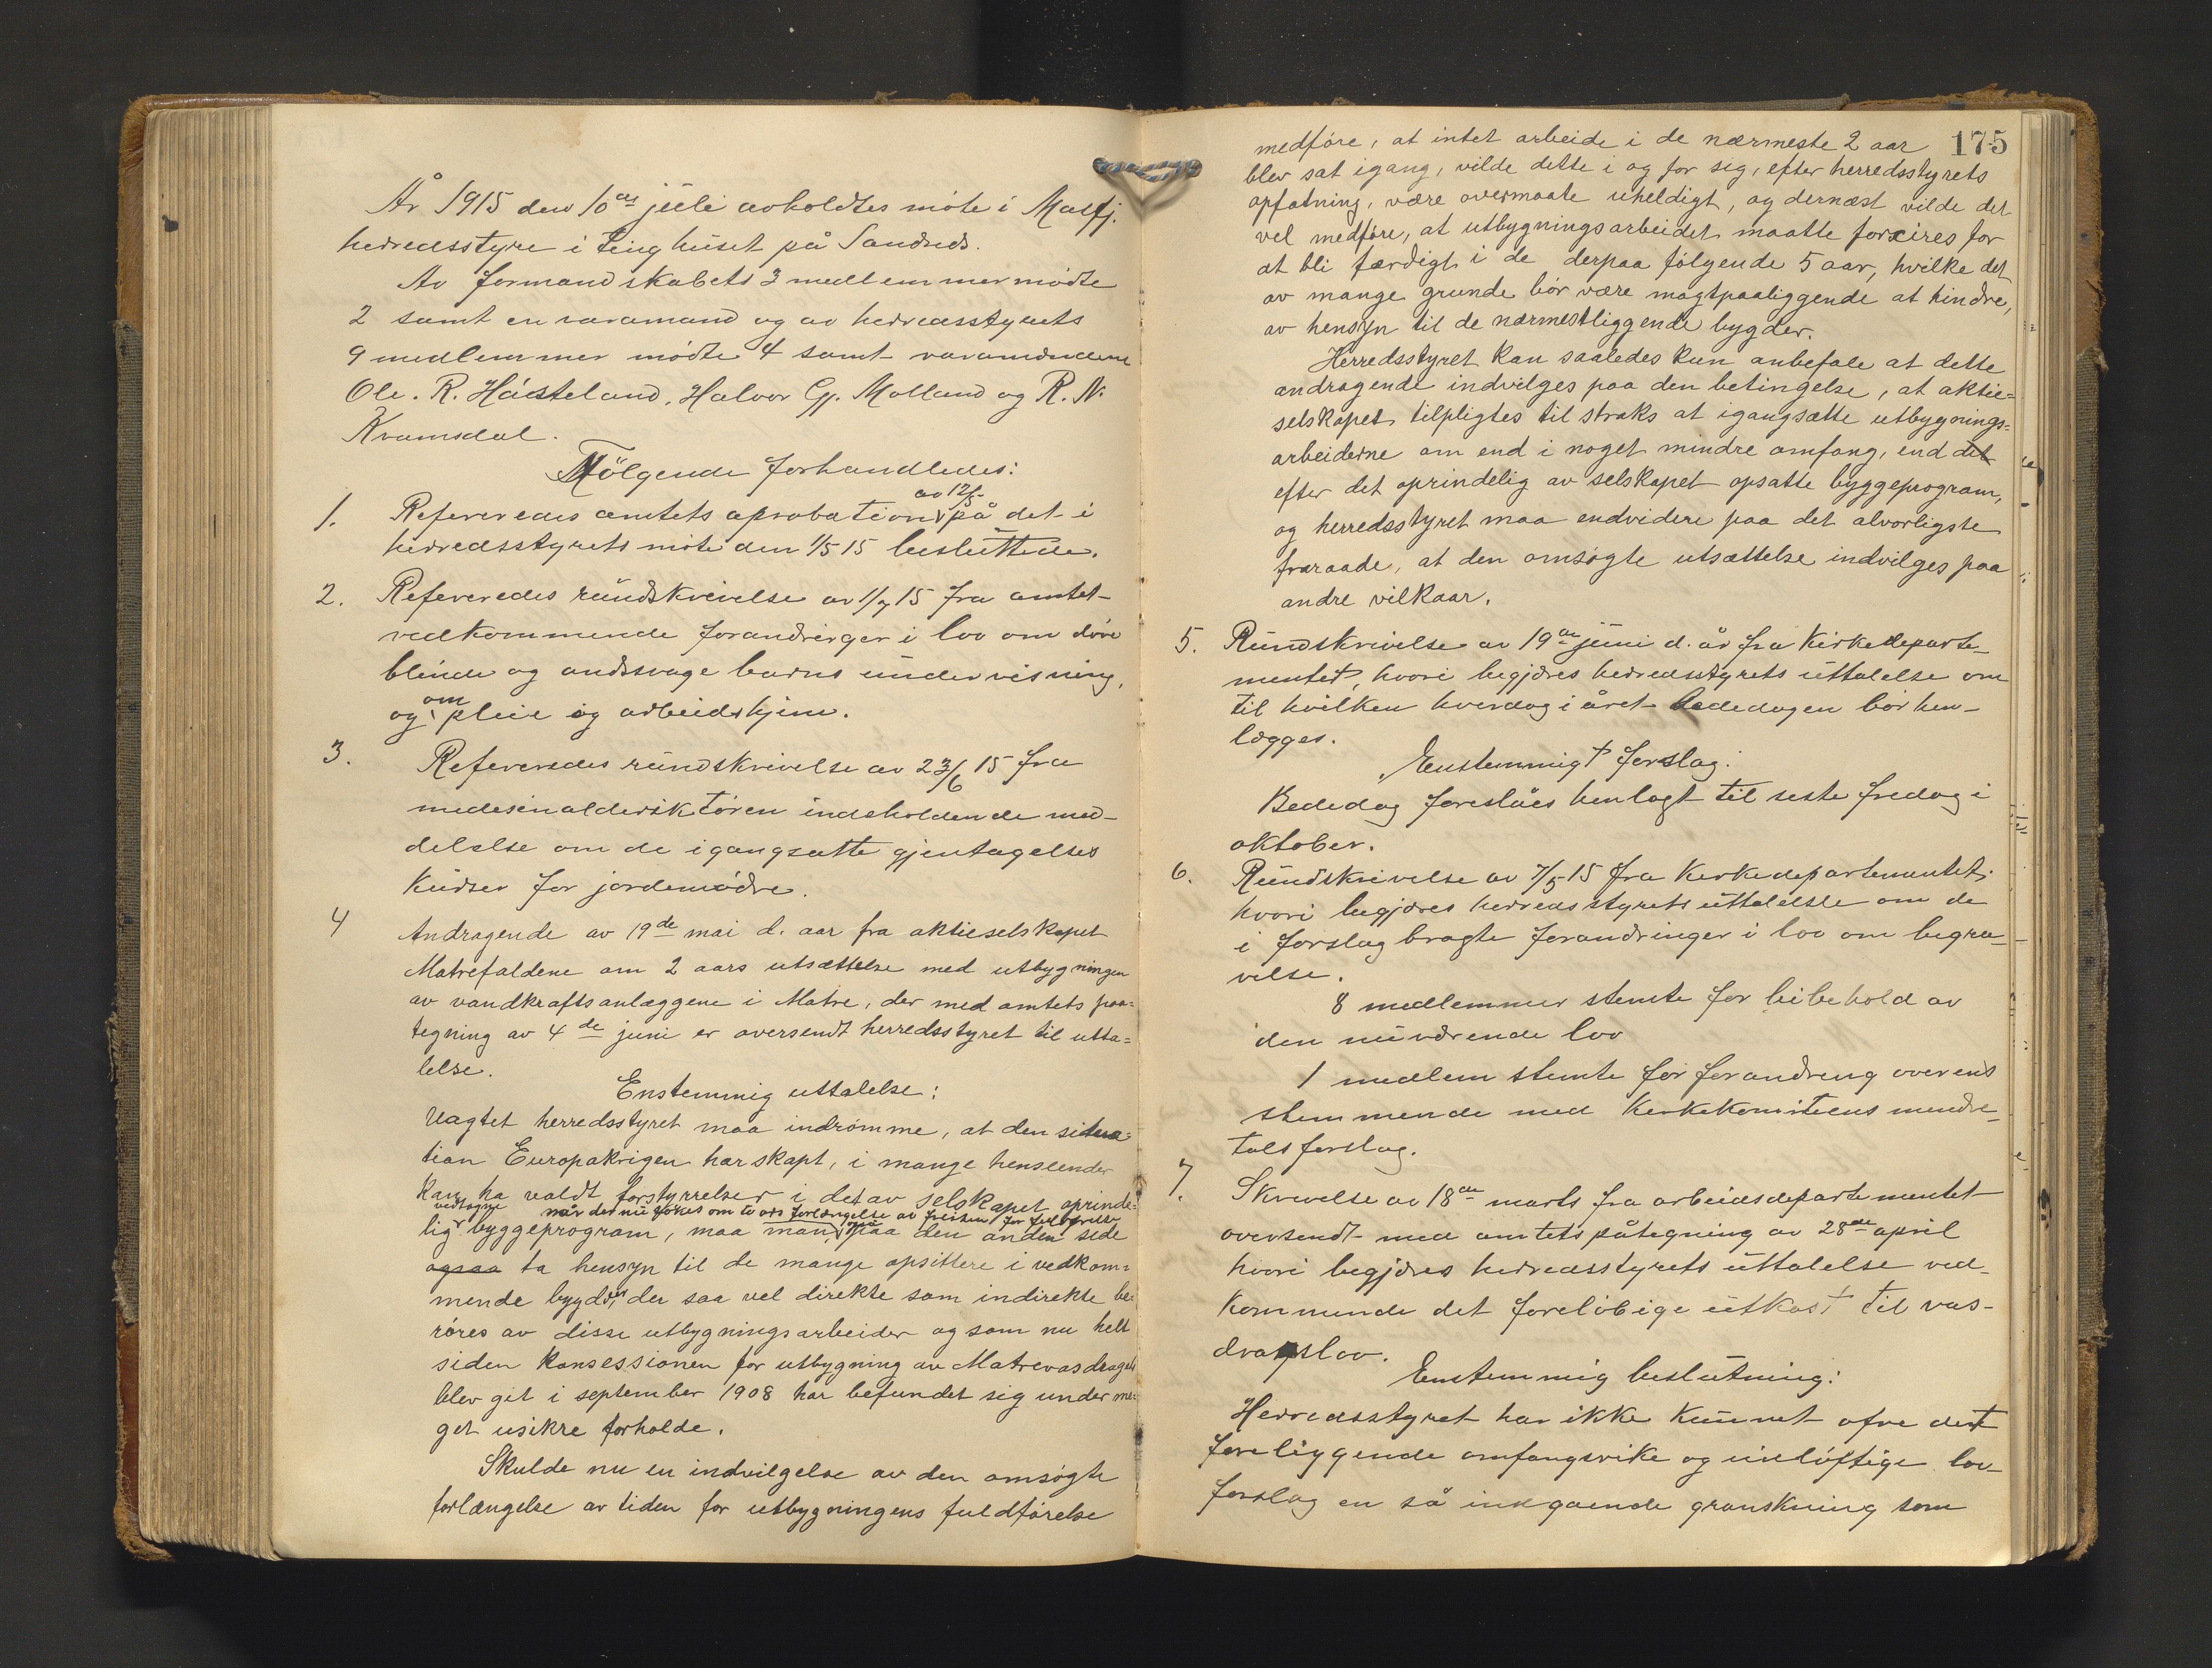 År 1915 den 10de juli avholdtes møte i Masfj.
herredsstyre i tinghuset på Sandnes.
Av formandskabets 3 medlemmer mødte
2 samt en varamand og av herredsstyrets
9 medlemmer mødte 4 samt varamændene
Ole. R. Håsteland, Halvor Gj. Molland og R. N.
Kvamsdal.
Følgende forhandledes:
1. Refereredes amtets aprobation av 12/5 på det i
herredsstyrets møte den 1/5 15 besluttede.
2. Refereredes rundskrivelse av 1/7 15 fra amtet
vedkommende forandringer i lov om døve
blinde og andssvage barns undervisning,
og om pleie og arbeidshjem.
3. Refereredes rundskrivelse av 23/6 15 fra
medesinaldirektøren indeholdende med-
delelse om de igangsatte gjentagelses
kurser for jordemødre.
4 Andragende av 19de mai d. aar fra aktieselskapet
Matrefaldene om 2 aars utsættelse med utbygningen
av vandkraftsanlæggene i Matre, der med amtets paa=
tegning av 4de juni er oversendt herredsstyret til utta=
lelse.
Enstemmig uttalelse:
Uagtet herredsstyret maa indrømme, at den situa=
tion Europakrigen har skapt, i mange henseender
kan ha voldt forstyrrelser i det av selskapet oprinde=
lig vedtagne byggeprogram, maa man når der nu søkes om to års forlængelse av fristen for fuldførelse også paa den anden side
ogsaa ta hensyn til de mange opsittere i vedkom=
mende bygder, der saa vel direkte som indirekte be=
røres av disse utbygningsarbeider og som nu helt
siden konsessionen for utbygning av Matrevasdraget
blev git i september 1908 har befundet sig under me=
get usikre forholde.
Skulde nu en indvilgelse av den omsøgte
forlængelse av tiden for utbygningens fuldførelse
175
medføre, at intet arbeide i de nærmeste 2 aar
blev sat igang, vilde dette i og for sig, efter herredsstyrets
opfatning, være overmaate uheldigt, og dernæst vilde det
vel medføre, at utbygningsarbeidet maatte forcires for
at bli færdigt i de derpaa følgende 5 aar, hvilke det
av mange grunde bør være magtpaaliggende at hindre,
av hensyn til de nærmestliggende bygder.
Herredsstyret kan saaledes kun anbefale at dette
andragende indvilges paa den betingelse, at aktie=
selskapet tilpligtes til straks at igangsætte utbygnings=
arbeiderne om end i noget mindre omfang, end det
efter det oprindelig av selskapet opsatte byggeprogram,
og herredsstyret maa endvidere paa det alvorligste
fraraade, at den omsøgte utsættelse indvilges paa
andre vilkaar.
5. Rundskrivelse av 19de juni d. år fra kirkedeparte-
mentet, hvori begjæres herredsstyrets uttalelse om
til hvilken hverdag i året bededagen bør hen-
lægges.
Enstemmigt forslag.
Bededag foreslåes henlagt til siste fredag i
oktober.
6. Rundskrivelse av 7/5 15 fra kirkedepartementet
hvori begjæres herredsstyrets uttalelse om de
i forslag bragte forandringer i lov om begra-
velse.
8 medlemmer stemte for beibehold av
den nuværende lov
1 medlem stemte for forandring overens
stemmende med kirkekomiteens mindre-
talsforslag.
7. Skrivelse av 18de marts fra arbeidsdepartementet
oversendt med amtets påtegning av 28de april
hvori begjæres herredsstyrets uttalelse ved-
kommende det foreløbige utkast til vas-
dragslov.
Enstemmig beslutning:
Herredsstyret har ikke kunnet ofre det
foreliggende omfangsrike og vidløftige lov-
forslag en så inngående granskning som